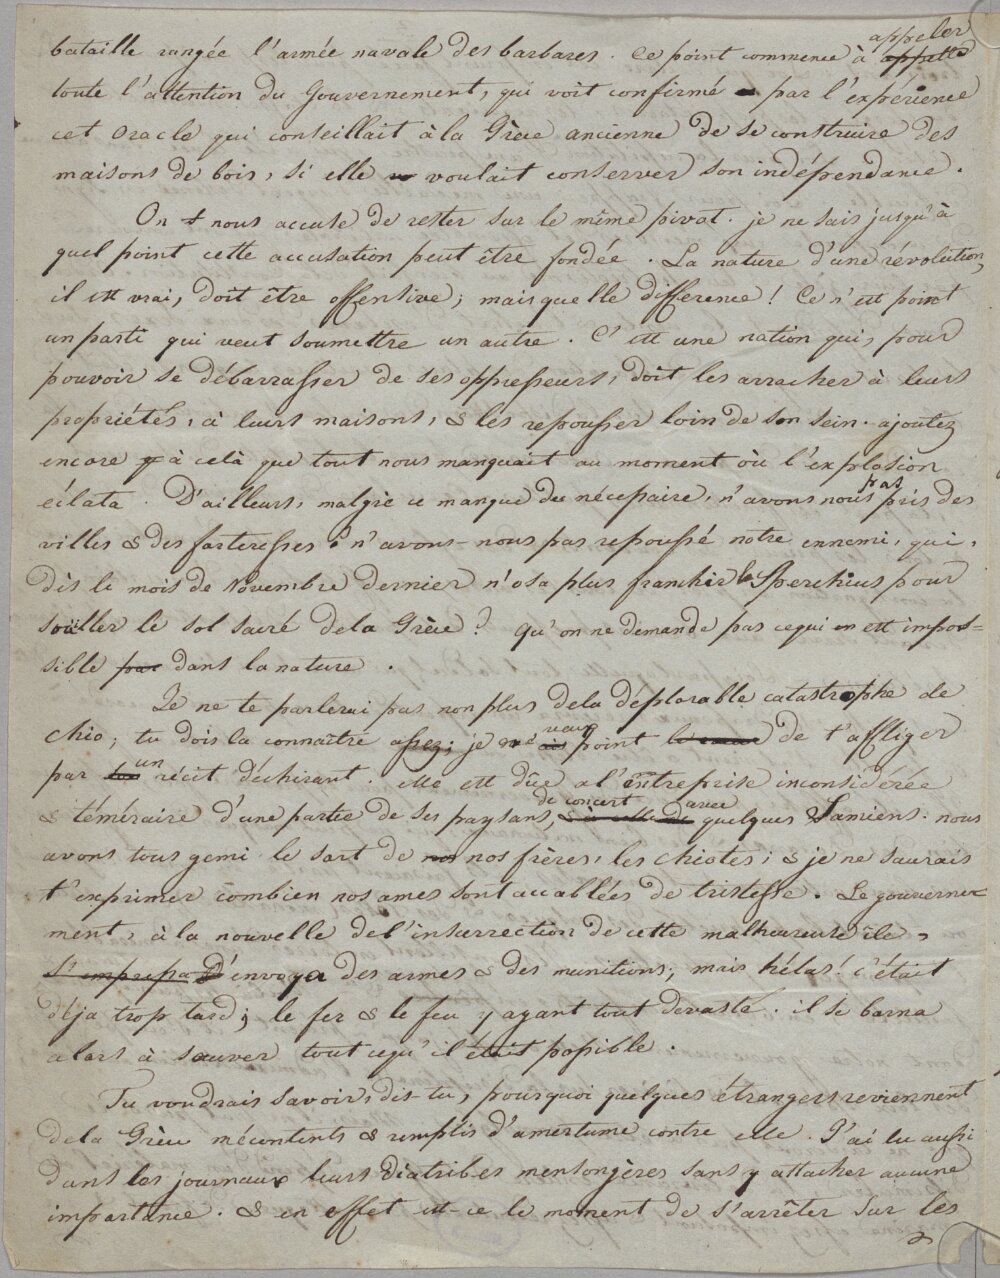 bataille rangée l'armée navale des barbares. Ce point commence à appeler
toute l'attention du Gouvernement, qui voit confirmé par l'expérience
cet oracle qui conseillait à la Grèce ancienne de se construire des
maisons de bois, si elle voulait conserver son indépendance.
On nous accuse de rester sur le même pivot. je ne sais jusqu'à
quel point cette accusation peut être fondée. La nature d'une revolution,
il est vrai, doit être offensive; mais quelle différence! Ce n'est point
un parti qui veut soumettre un autre. C'est une nation qui, pour
pouvoir se débarrasser de ses oppresseurs, doit les arracher à leurs
propriétés, à leurs maisons, & les repousser loin de son sein. ajoutez
encore à celà que tout nous manquait au moment où l'explosion
éclata. D'ailleurs, malgré ce manque du nécessaire, n'avons nous pas pris des
villes & des farteresses? n'avons-nous pas repoussé notre ennemi, qui,
dès le mois de Novembre dernier n'osa plus franchir le Sperchius pour
souiller le sol sacré dela Grèce? qu'on ne demande pas cequi est impos=
sible dans la nature.
Je ne te parlerai pas non plus dela déplorable catastrophe de
Chio; tu dois la connaître assez; je ne veux point de t'affliger
par un récit déchirant. elle est dûe a l'entreprise inconsidérée
& téméraire d'une partie de ses paysans, de concert avec quelques Samiens. nous
avons tous gemi le sort de nos frères, les Chiotes; & je ne saurais
t'exprimer combien nos ames sont accablées de tristesse. Le gouverne=
ment, à la nouvelle de l'insurrection de cette malheureuse île,
envoya des armes & des munitions; mais hélas! c'était
déja trop tard; le fer & le feu y ayant tout devasté. il se borna
alors à sauver tout cequ'il était possible.
Tu voudrais savoir, dis-tu, pourquoi quelques étrangers reviennent
dela Grèce mécontents & remplis d'amertume contre elle. J'ai lu aussi
dans les journaux leurs diatribes mensongères sans y attacher aucune
importance. & en effet est-ce le moment de s'arrêter sur les